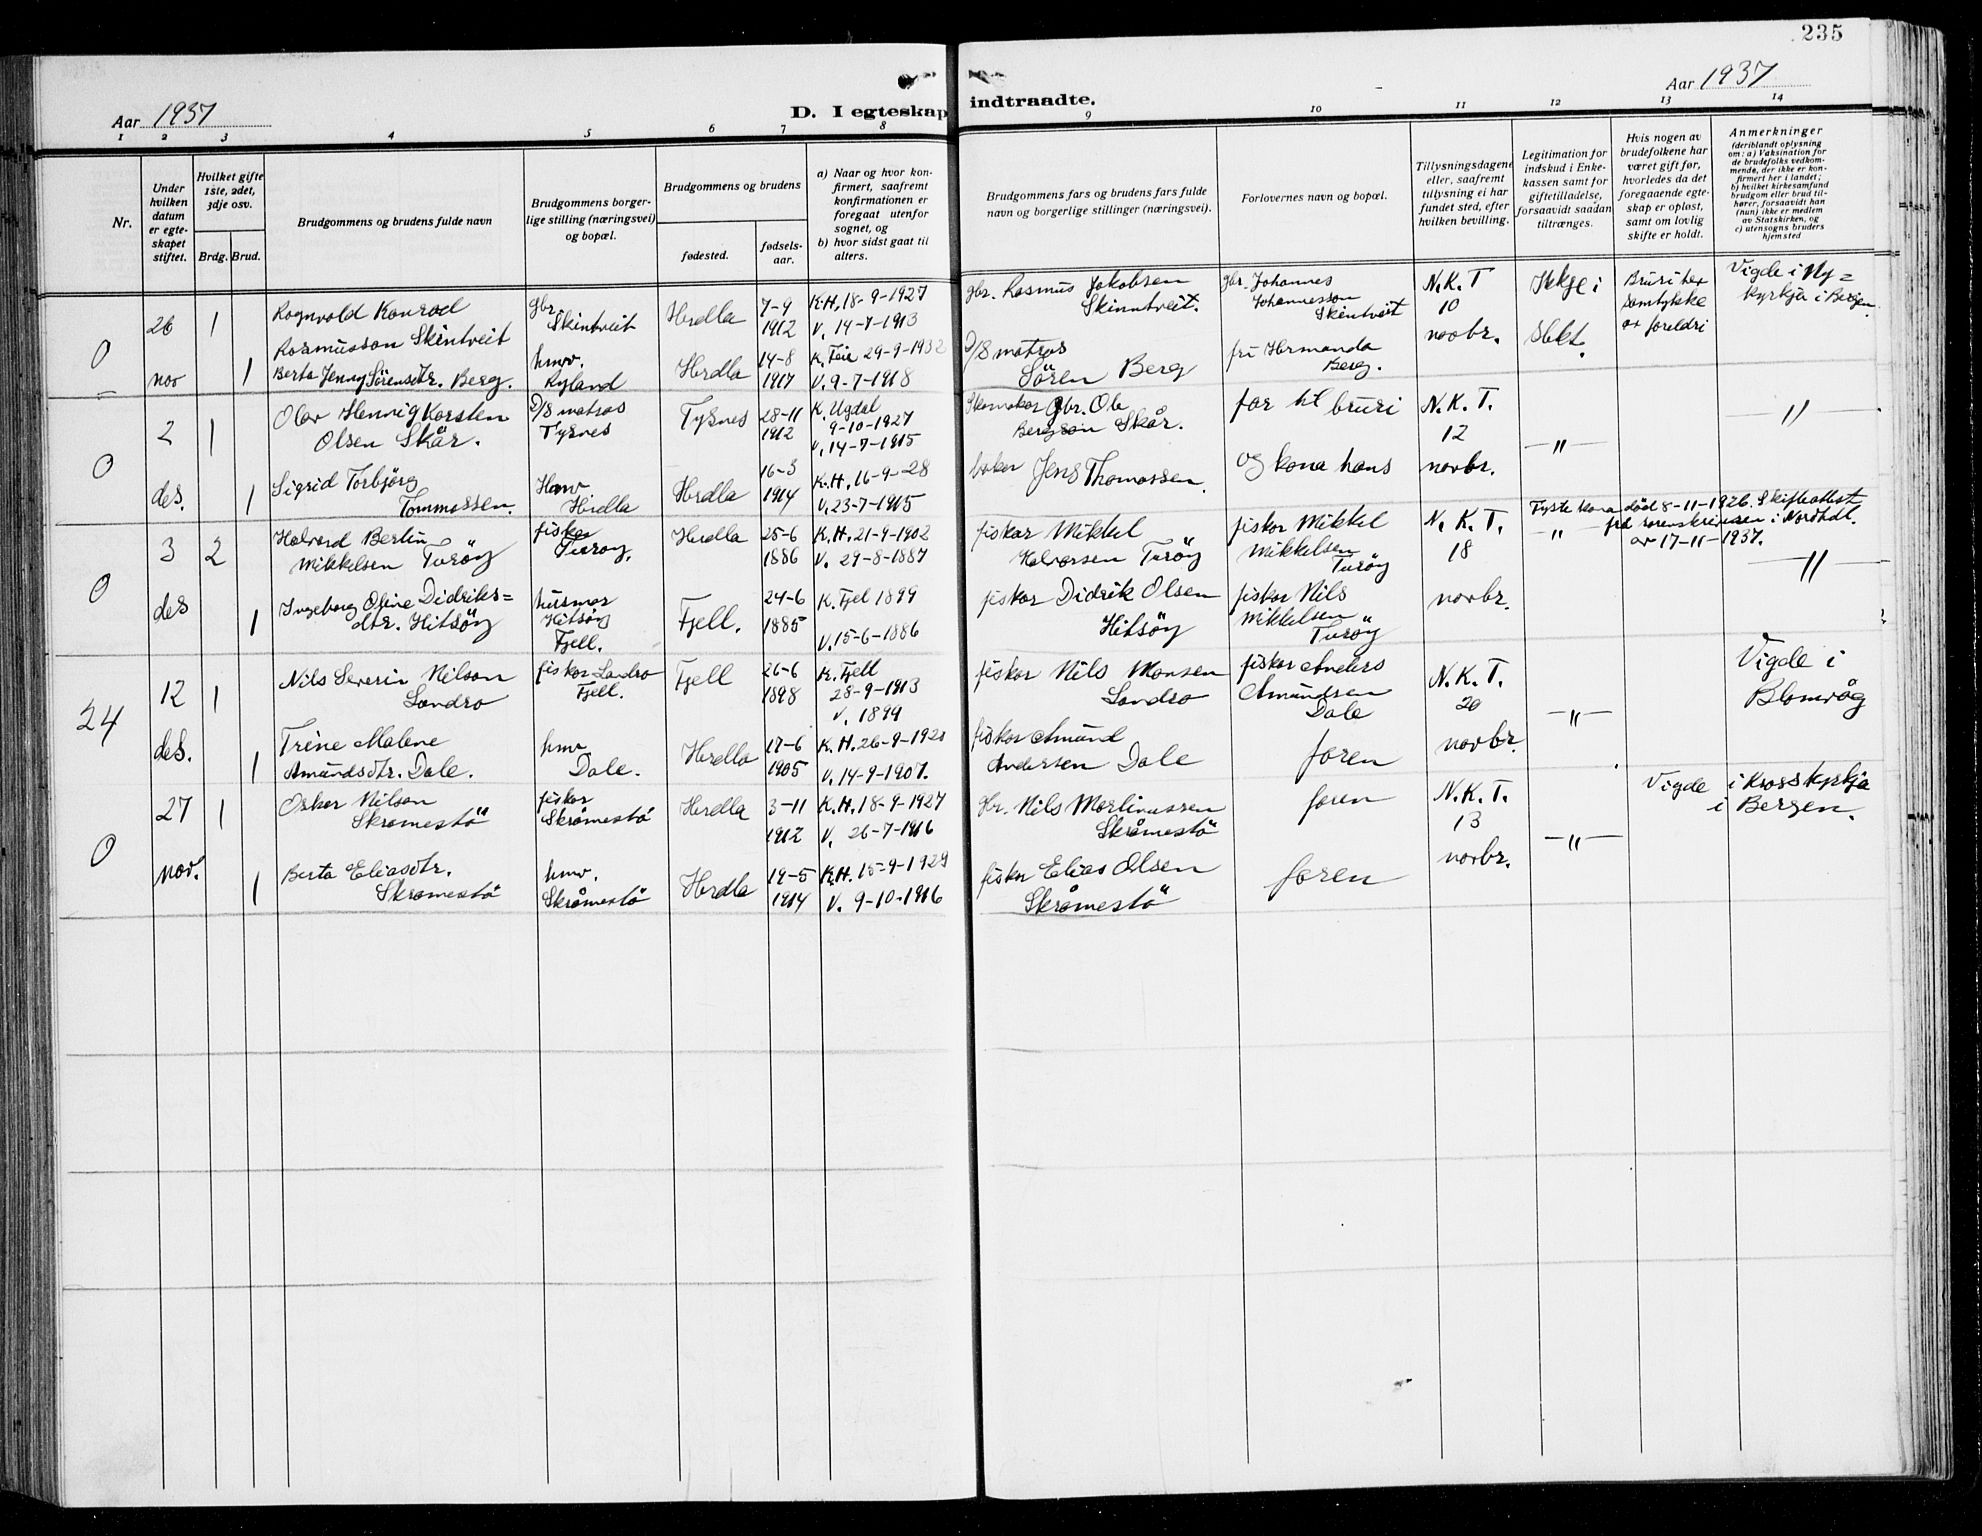 235
Aar 1937
D. I egteskap indtraadte.
Aar 1937
1 2 3 4 5 6 7 8 9 10 11 12 13 14
Nr.
Under hvilken datum er egteskapet stiftet.
Hvilket gifte 1ste, 2det, 3dje osv.
Brdg. Brud.
Brudgommens og brudens fulde navn
Brudgommens borgerlige stilling (næringsvei) og bopæl.
Brudgommens og brudens
fødested.
fødselsaar.
a) Naar og hvor konfirmert, saafremt konfirmationen er foregaat utenfor sognet, og
b) hvor sidst gaat til alters.
Brudgommens fars og brudens fars fulde navn og borgerlige stillinger (næringsvei).
Forlovernes navn og bopæl.
Tillysningsdagene eller, saafremt tillysning ei har fundet sted, efter hvilken bevilling.
Legitimation for indskud i Enkekassen samt for giftetilladelse, forsaavidt saadan tiltrænges.
Hvis nogen av brudefolkene har været gift før, hvorledes da det foregaaende egteskap er opløst, samt om lovlig skifte er holdt.
Anmerkninger (deriblandt oplysning om: a) Vaksination for de brudefolks vedkommende, der ikke er konfirmert her i landet; b) hvilket kirkesamfund brudgom eller brud tilhører, forsaavidt han (hun) ikke er medlem av Statskirken, og c) utensogns bruders hjemsted
0
26 nov
1
Ragnvald Konrad
Rasmusson Skintveit
gbr. Skintveit
Herdla
7-9 1912
K.H. 18-9-1927
V. 14-7-1913
gbr. Rasmus Jakobsen
Skinntveit.
gbr. Johannes
Johannesson
Skintveit
N.K.T
10
novbr.
Ikkje i
Slekt.
Bruri har
samtykke
av foreldri
Vigde i Ny=
kyrkja i Bergen.
1
Berta Jenny Sörensdtr. Berg.
hmv.
Ryland
Herdla
14-8 1917
K. Feie 29-9-1932
V. 9-7-1918
D/S matros
Sören Berg
fru Hermanda
Berg.
0
2 des.
1
Olav Hennig Karsten
Olsen Skår.
D/S matros
Tysnes
Tysnes
28-11 1912
K. Ugdal
9-10-1927
V. 14-7-1915
Skomakar gbr. Ole
Bergson Skår.
far til bruri
N.K.T.
12
novbr.
—"—
—"—
1
Sigrid Torbjörg
Tommassen.
Hmv
Herdla
Herdla
16-3 1914
K.H. 16-9-28
V. 23-7-1915
baker Jens Thomassen.
og kona hans
0
3 des
2
Halvard Bertin
Mikkelsen Turöy
fiskar
Turöy.
Herdla
25-6 1886
K.H. 21-9-1902
V. 29-8-1887
fiskar Mikkel
Halvorsen Turöy
fiskar Mikkel
Mikkelsen
Turöy
N.K.T.
18
novbr.
—"—
Fyste kona död 8-11-1926. Skifteattest
frå sorenskrivaren i Nordhdl.
av 17-11-1937.
—"—
1
Ingeborg Oline Didriks=
dtr. Hitsöy
husmor
Hitsöy
Fjell.
Fjell.
24-6 1885
K. Fjel 1899
V. 15-6-1886
fiskar Didrik Olsen
Hitsöy
fiskar Nils
Mikkelsen
Turöy
24
12 des.
1
Nils Severin Nilson
Landro
fiskar Landro
Fjell.
Fjell
26-6 1898
K. Fjell
28-9-1913
V. 1899
fiskar Nils Monsen
Landro
fiskar Anders
Amundsen
Dale
N.K.T.
20
novbr.
—"—
Vigde i
Blomvåg
1
Trine Malene
Amundsdtr. Dale.
hmv
Dale.
Herdla
17-6 1905
K.H. 26-9-1920
V. 14-9-1907.
fiskar Amund
Andersen Dale
faren
0
27 nov.
1
Oskar Nilson
Skråmestö
fiskar
Skråmestö
Herdla
3-11 1912
K.H. 18-9-1927
V. 26-7-1916
gbr. Nils Martinussen
Skråmestö
faren
N.K.T.
13
novbr.
—"—
Vigde i Krosskyrkja
i Bergen.
1
Berta Eliasdtr.
Skråmestö
hmv.
Skråmestö
Herdla
19-5 1914
K.H. 15-9-1929
V. 9-10-1916
fiskar Elias Olsen
Skråmestö
faren